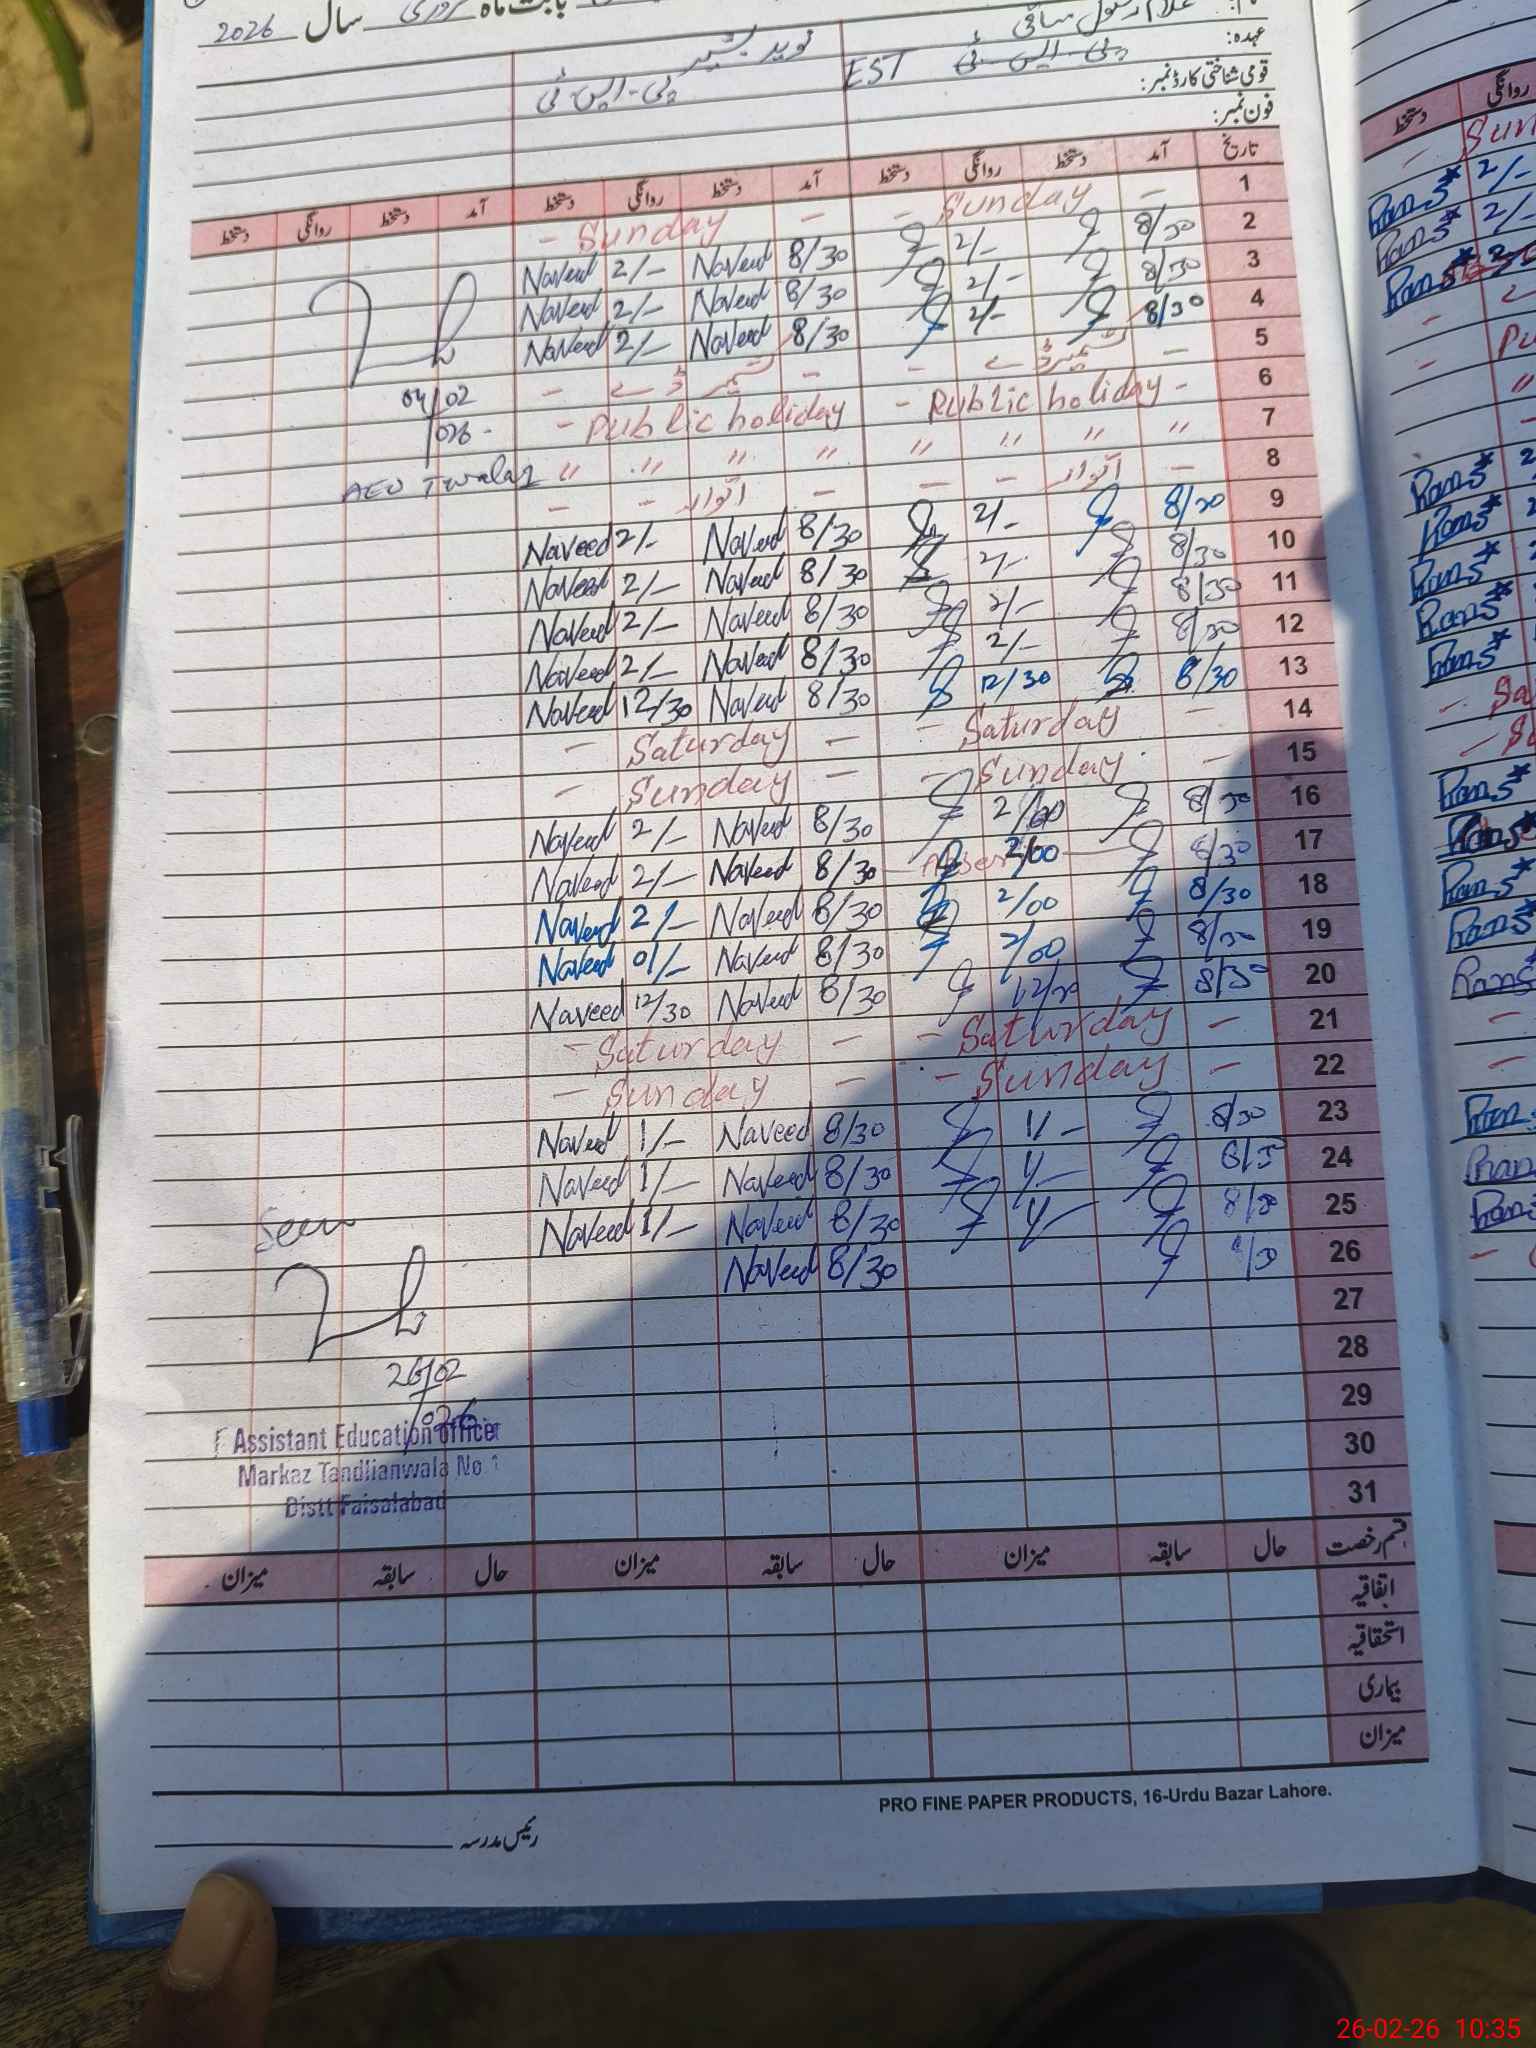 2026 سال بابت ماہ
غلام رسول ساقی
نوید بشیر
عہدہ:
EST پی-ایس-ٹی
پی-ایس-ٹی
قومی شناختی کارڈ نمبر:
فون نمبر:
تاریخ آمد دستخط روانگی دستخط آمد دستخط روانگی دستخط آمد دستخط روانگی دستخط
1 - Sunday - - Sunday -
2 8/30 2/- 8/30 Naveed 2/- Naveed
3 8/30 2/- 8/30 Naveed 2/- Naveed
4 8/30 2/- 8/30 Naveed 2/- Naveed
5 - کشمیر ڈے - - کشمیر ڈے -
6 - Public holiday - - Public holiday
7 " " " " " " " "
8 - اتوار - - - اتوار - -
9 8/30 2/- 8/30 Naveed 2/- Naveed
10 8/30 2/- 8/30 Naveed 2/- Naveed
11 8/30 2/- 8/30 Naveed 2/- Naveed
12 8/30 2/- 8/30 Naveed 2/- Naveed
13 8/30 12/30 8/30 Naveed 12/30 Naveed
14 - Saturday - - Saturday -
15 - Sunday - - Sunday -
16 8/30 2/00 8/30 Naveed 2/- Naveed
17 8/30 2/00 8/30 Naveed 2/- Naveed
18 8/30 2/00 8/30 Naveed 2/- Naveed
19 8/30 2/00 8/30 Naveed 01/- Naveed
20 8/30 12/30 8/30 Naveed 12/30 Naveed
21 - Saturday - - Saturday -
22 - Sunday - - Sunday -
23 8/30 1/- 8/30 Naveed 1/- Naveed
24 1/- 8/30 Naveed 1/- Naveed
25 8/30 1/- 8/30 Naveed 1/- Naveed
26 8/30 Naveed
27
28
29
30
31
04/02
/026-
AEO
Seen
26/02
/026
Assistant Education officer
Markaz Tandlianwala No 1
Distt Faisalabad
قسم رخصت حال سابقہ میزان حال سابقہ میزان حال سابقہ میزان
اتفاقیہ
استحقاقیہ
بیماری
میزان
PRO FINE PAPER PRODUCTS, 16-Urdu Bazar Lahore.
رئیس مدرسہ
روانگی دستخط
26-02-26 10:35